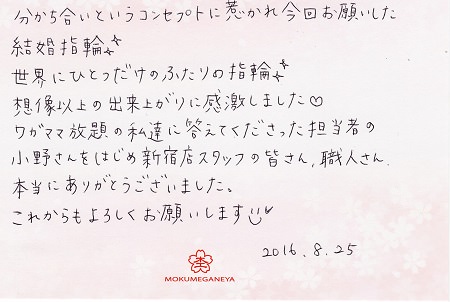 分かち合いというコンセプトに惹かれ今回お願いした
結婚指輪✨
世界にひとつだけのふたりの指輪✨
想像以上の出来上がりに感激しました♡
ワガママ放題の私達に答えてくださった担当者の
小野さんをはじめ新宿店スタッフの皆さん、職人さん、
本当にありがとうございました。
これからもよろしくお願いします
2016.8.25
MOKUMEGANEYA